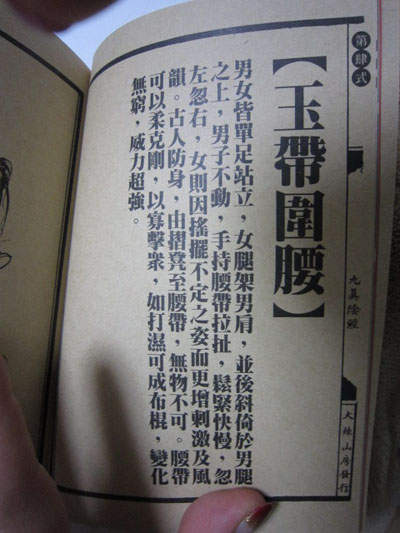 第肆式
九真陰經
大辣山房發行
【玉帶圍腰】
男女皆單足站立，女腿架男肩，並後斜倚於男腿
之上，男子不動，手持腰帶拉扯，鬆緊快慢，忽
左忽右，女則因搖擺不定之姿而更增刺激及風
韻。古人防身，由摺凳至腰帶，無物不可。腰帶
可以柔克剛，以寡擊衆，如打濕可成布棍，變化
無窮，威力超強。